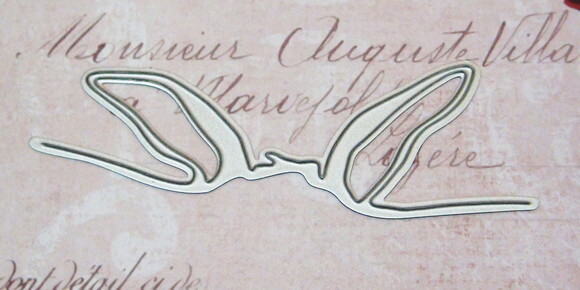 Monsieur Auguste Villa
a Marvejol
Lozére
dont détail ci de